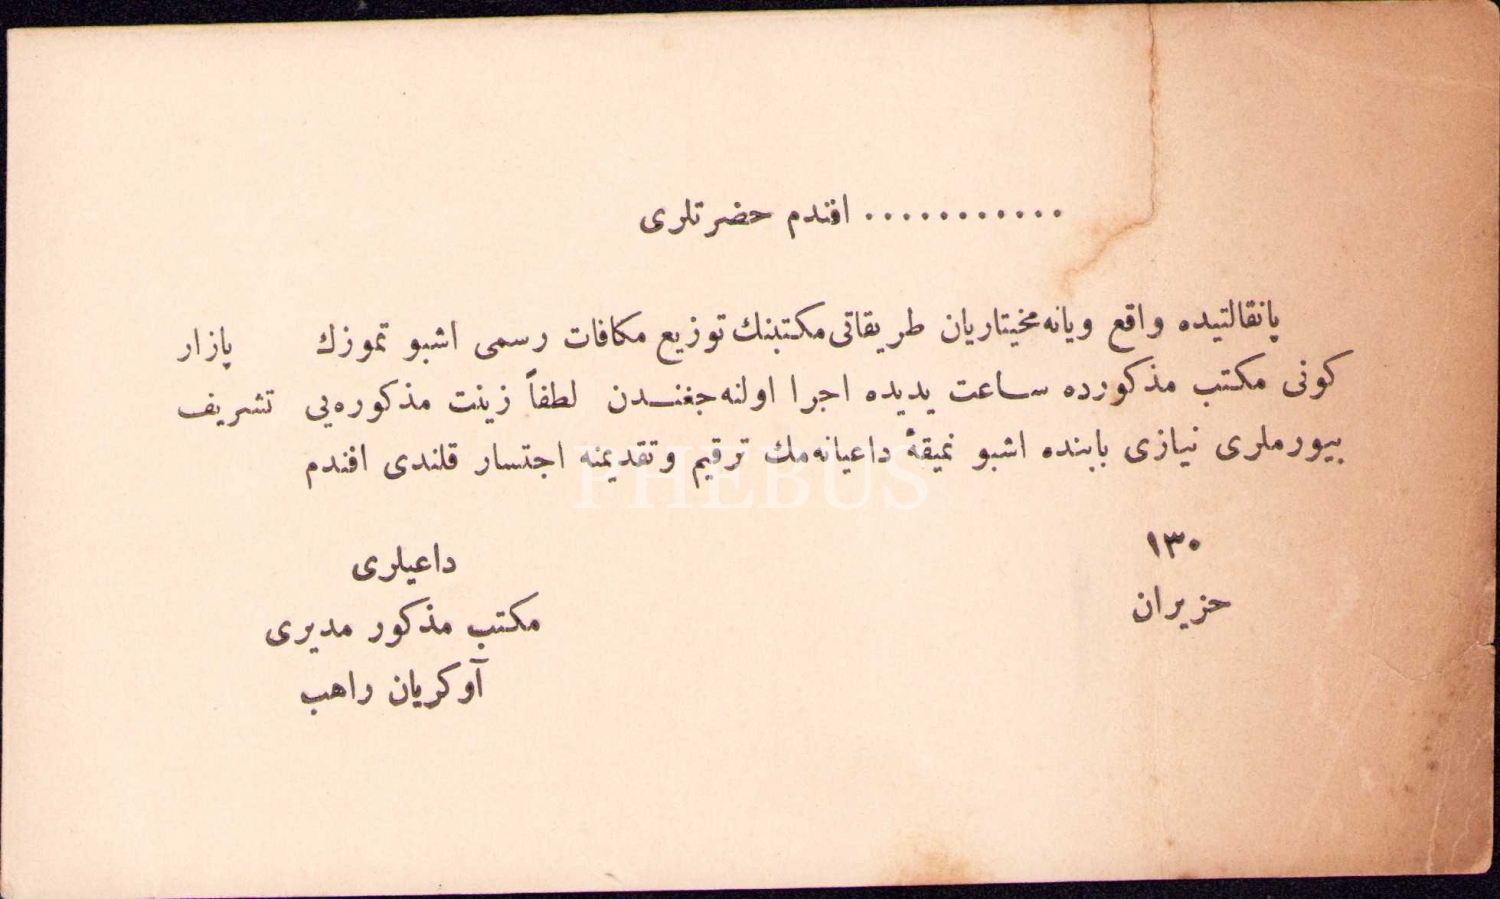 ........... افندم حضرتلری
پانقالتیده واقع ویانه مخیتاریان طریقاتی مکتبنك توزیع مکافات رسمی اشبو تموزك پازار
کونی مکتب مذکورده ساعت یدیده اجرا اولنه جغندن لطفاً زینت مذکوره یی تشریف
بیورملری نیازی بابنده اشبو نمیقهٔ داعیانه مك ترقیم وتقدیمنه اجتسار قلندی افندم
۱۳۰
حزیران
داعیلری
مکتب مذکور مدیری
آوکریان راهب
PHEBUS